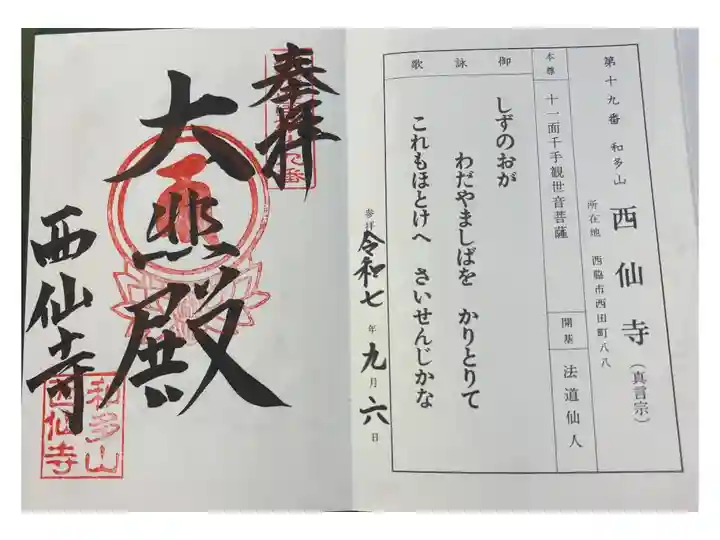 第十九番 和多山 西仙寺 (真言宗)
所在地 西脇市西田町八八
本尊 十一面千手観世音菩薩
開基 法道仙人
御詠歌
しずのおが
わだやましばを かりとりて
これもほとけへ さいせんじかな
参拝 令和七年九月六日
奉拝
大悲殿
西仙寺
和多山
西仙寺